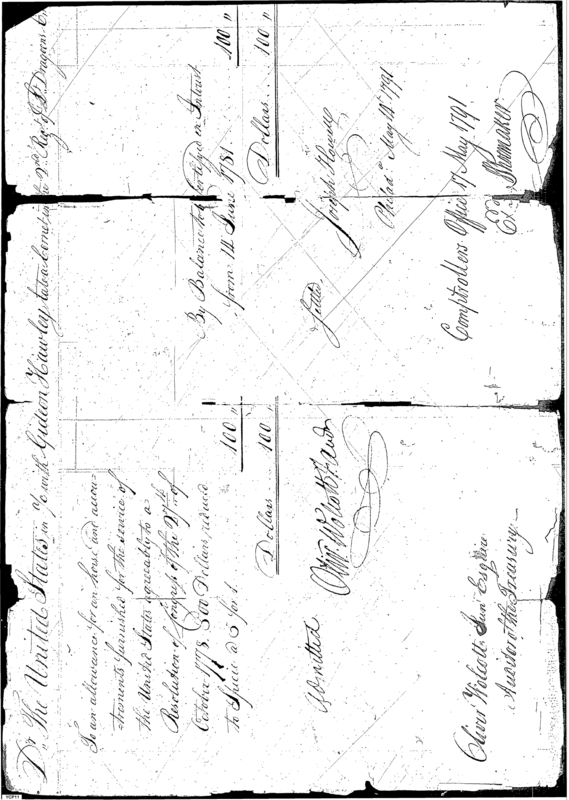 Dr. The United States in a/c with Gideon Hawley late a Cornet in the 2nd Reg. of Lt. Dragoons Cr.
To an allowance for an horse and accou-
troments furnished for the service of
the United States agreeably to a
Resolution of Congress of the 27th of
October 1778. 500 Dollars, reduced
to Specie a 5 for 1.
100 "
Dollars 100
By Balance to be Certified on Interest
from 14 June 1781.
100 "
Dollars... 100 "
Admitted
Olivr Wolcott Jun Audr
Joseph Howell
Philada May 18th 1791
Oliver Wolcott Jun Esquire
Auditor of the Treasury
Comptrollers Office 17 May 1791
Ex. Shumaker